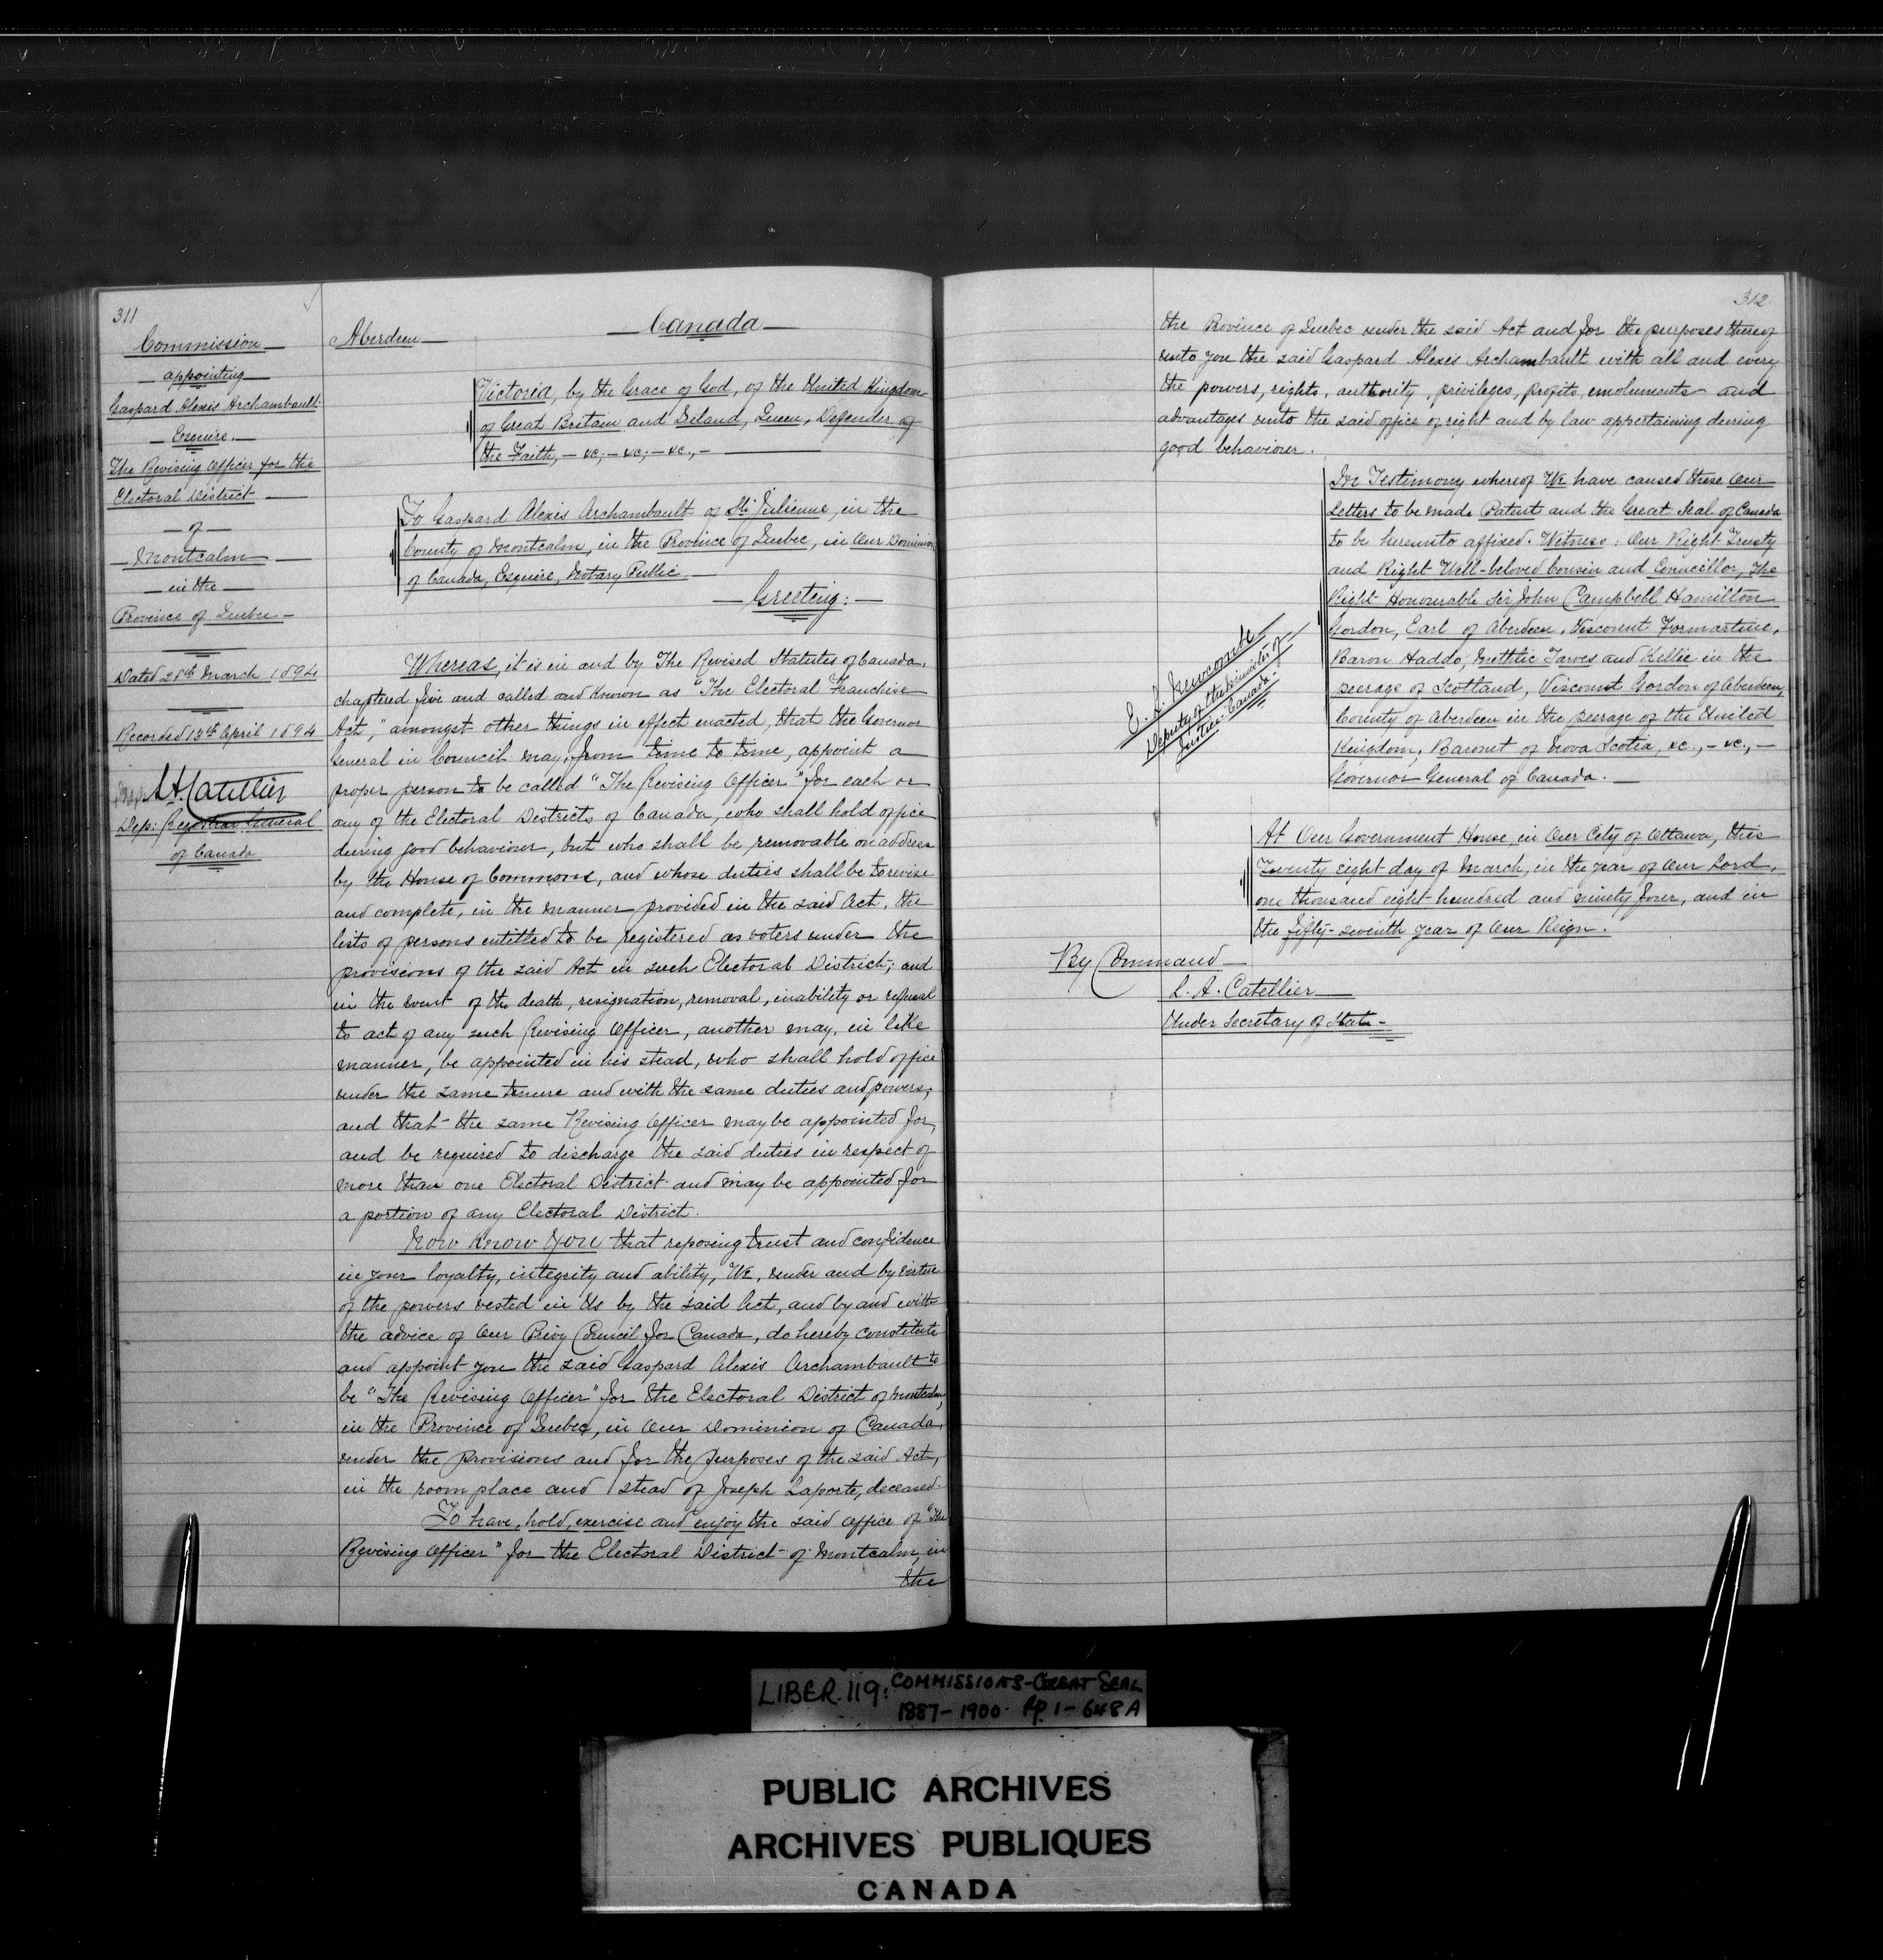 311
Commission
appointing
Gaspard Alexis Archambault
Esquire.
The Revising Officer for the
Electoral District
of
Montcalm
in the
Province of Quebec
Dated 28th March 1894
Recorded 13th April 1894
L. A. Catellier
Dep: Registrar General
of Canada
Canada
Aberdeen
Victoria, by the Grace of God, of the United Kingdom
of Great Britain and Ireland, Queen, Defender of
the Faith, - &c; - &c; - &c., -
To Gaspard Alexis Archambault of Ste Julienne, in the
County of Montcalm, in the Province of Quebec, in Our Dominion
of Canada, Esquire, Notary Public
Greeting: -
Whereas, it is in and by The Revised Statutes of Canada,
chaptered five and called and known as "The Electoral Franchise
Act," amongst other things in effect enacted, that the Governor
General in Council may, from time to time, appoint a
proper person to be called "The Revising Officer" for each or
any of the Electoral Districts of Canada, who shall hold office
during good behaviour, but who shall be removable on address
by the House of Commons, and whose duties shall be to revise
and complete, in the manner provided in the said Act, the
lists of persons entitled to be registered as voters under the
provisions of the said Act in such Electoral District; and
in the event of the death, resignation, removal, inability or refusal
to act of any such Revising Officer, another may, in like
manner, be appointed in his stead, who shall hold office
under the same tenure and with the same duties and powers;
and that the same Revising Officer may be appointed for,
and be required to discharge the said duties in respect of
more than one Electoral District and may be appointed for
a portion of any Electoral District.
Now Know You that reposing trust and confidence
in your loyalty, integrity and ability, We, under and by virtue
of the powers vested in Us by the said Act, and by and with
the advice of Our Privy Council for Canada, do hereby constitute
and appoint you the said Gaspard Alexis Archambault to
be "The Revising Officer" for the Electoral District of Montcalm,
in the Province of Quebec, in Our Dominion of Canada,
under the provisions and for the purposes of the said Act,
in the room place and stead of Joseph Laporte, deceased.
To have, hold, exercise and enjoy the said office of "The
Revising Officer" for the Electoral District of Montcalm, in
the
312
the Province of Quebec under the said Act and for the purposes thereof
unto you the said Gaspard Alexis Archambault with all and every
the powers, rights, authority, privileges, profits, emoluments and
advantages unto the said office of right and by law appertaining during
good behaviour.
In Testimony whereof We have caused these Our
Letters to be made Patent and the Great Seal of Canada
to be hereunto affixed. Witness: Our Right Trusty
and Right Well-beloved Cousin and Councillor, The
Right Honourable Sir John Campbell Hamilton
Gordon, Earl of Aberdeen, Viscount Formartine,
Baron Haddo, Methlic Tarves and Kellie in the
peerage of Scotland, Viscount Gordon of Aberdeen,
County of Aberdeen in the peerage of the United
Kingdom, Baronet of Nova Scotia, &c., - &c., -
Governor General of Canada.
E. L. Newcombe
Deputy of the Minister of
Justice. Canada.
At Our Government House, in Our City of Ottawa, this
Twenty eight day of March, in the year of Our Lord,
one thousand eight hundred and ninety four, and in
the fifty-seventh year of Our Reign.
By Command
L. A. Catellier
Under Secretary of State
LIBER. 119: COMMISSIONS-GREAT SEAL
1887-1900. Pp. 1-648A
PUBLIC ARCHIVES
ARCHIVES PUBLIQUES
CANADA